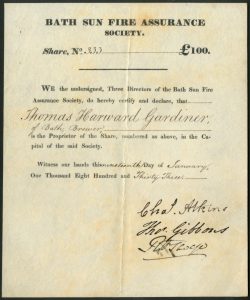 BATH SUN FIRE ASSURANCE
SOCIETY.
Share, No. 233 £100.
WE the undersigned, Three Directors of the Bath Sun Fire
Assurance Society, do hereby certify and declare, that
Thomas Harward Gardiner,
of Bath, Brewer,
is the Proprietor of the Share, numbered as above, in the Ca-
pital of the said Society.
Witness our hands this nineteenth Day of January,
One Thousand Eight Hundred and Thirty Three.
Chas. Atkins
Thos. Gibbons